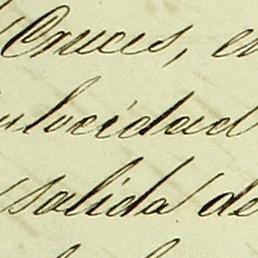 Cruces, en
ulocidad
salida de